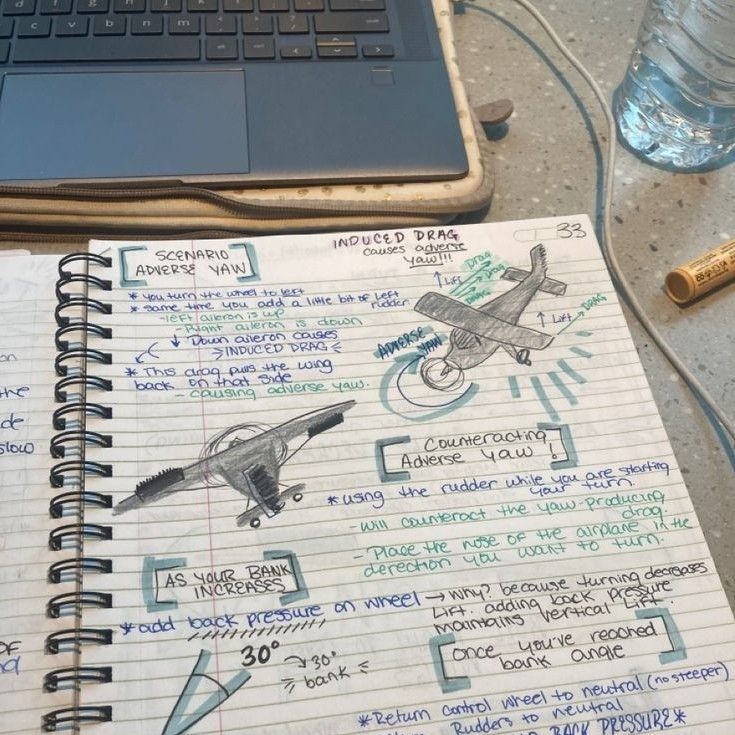 SCENARIO
ADVERSE YAW
INDUCED DRAG
causes adverse
yaw!!!
33
* you turn the wheel to left
* same time you add a little bit of left
rudder
- left aileron is up
- Right aileron is down
↓ Down aileron causes
INDUCED DRAG
* This drag pulls the wing
back on that side
- causing adverse yaw.
Drag
Drag
DRAG
↑ Lift
↑ Lift
DRAG
ADVERSE
YAW
Counteracting
Adverse yaw!
* using the rudder while you are starting
your turn.
- will counteract the yaw-producing
drag.
- Place the nose of the airplane in the
derection you want to turn.
AS YOUR BANK
INCREASES
* add back pressure on wheel → why? because turning decreases
Lift. adding back pressure
maintains vertical Lift.
30°
30°
bank
once you've reached
bank angle
* Return control wheel to neutral (no steeper)
Rudders to neutral
BACK PRESSURE *
on
the
de
slow
OF